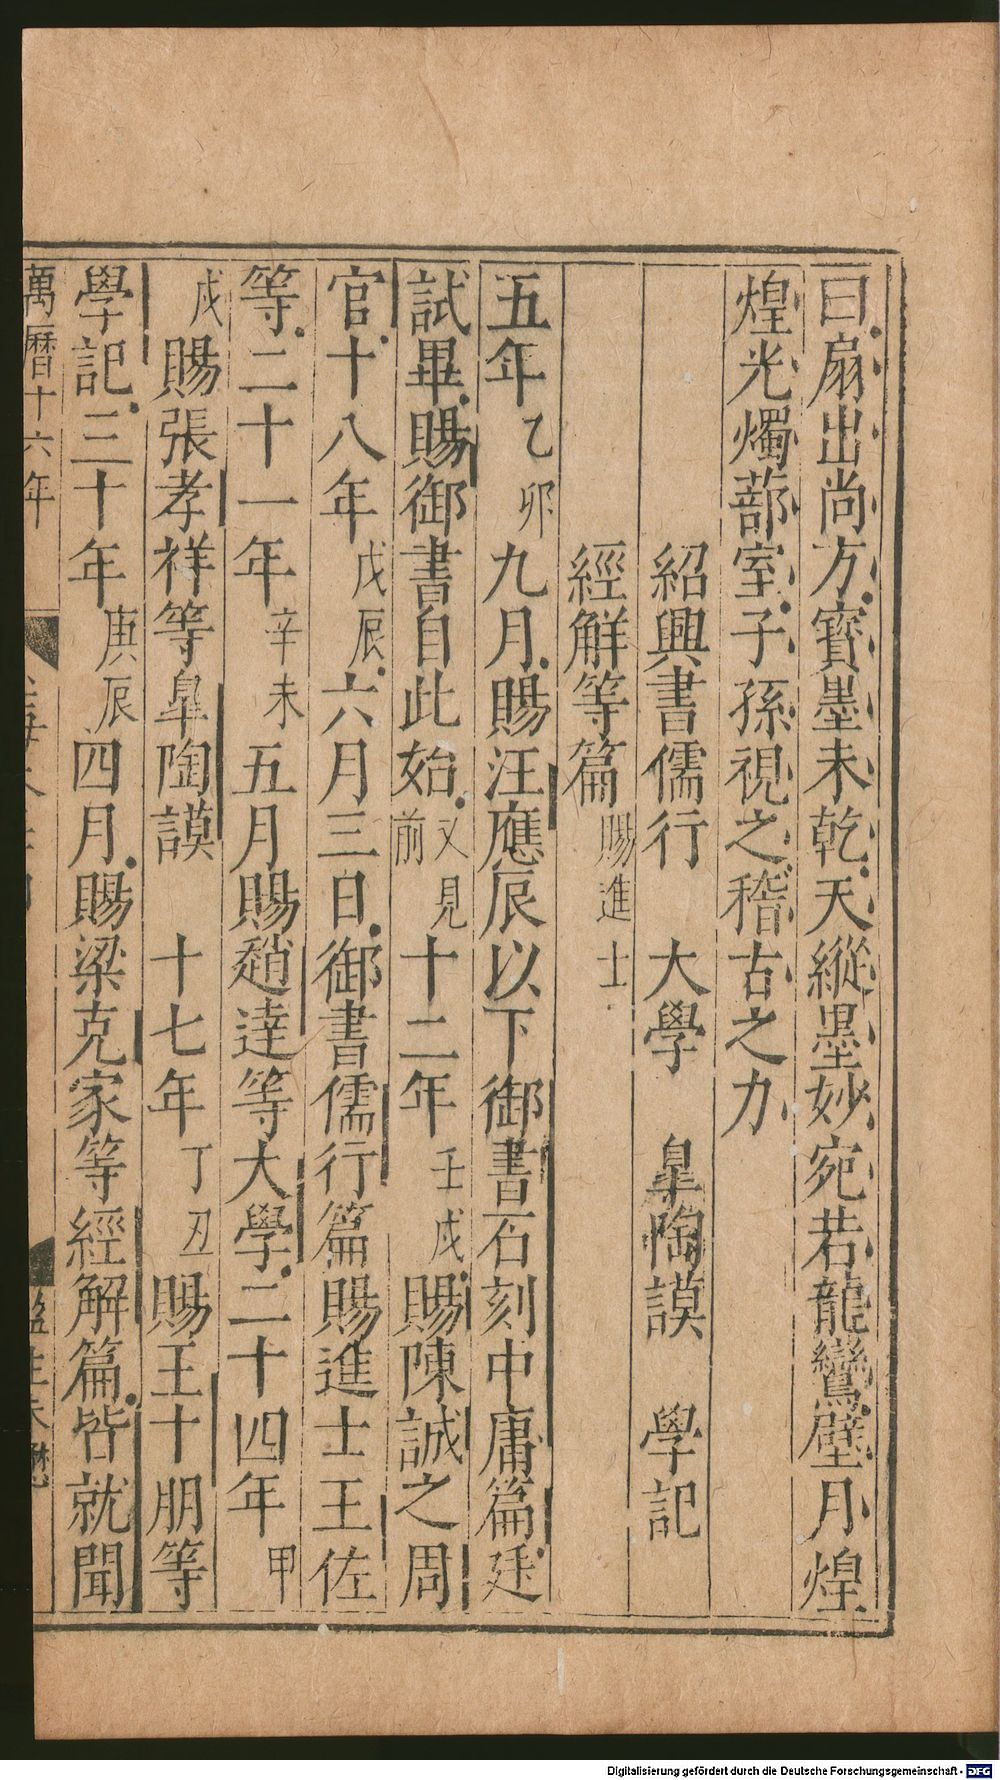 曰扇出尚方寶墨未乾天縱墨妙宛若龍鸞壁月煌
煌光燭蔀室子孫視之稽古之力
紹興書儒行 大學 皐陶謨 學記
經解等篇賜進士
五年乙卯九月賜汪應辰以下御書石刻中庸篇廷
試畢賜御書自此始又見前十二年壬戌賜陳誠之周
官十八年戊辰六月三日御書儒行篇賜進士王佐
等二十一年辛未五月賜趙逵等大學二十四年甲
戌賜張孝祥等皐陶謨 十七年丁丑賜王十朋等
學記三十年庚辰四月賜梁克家等經解篇皆就聞
萬曆十六年
Digitalisierung gefördert durch die Deutsche Forschungsgemeinschaft - DFG